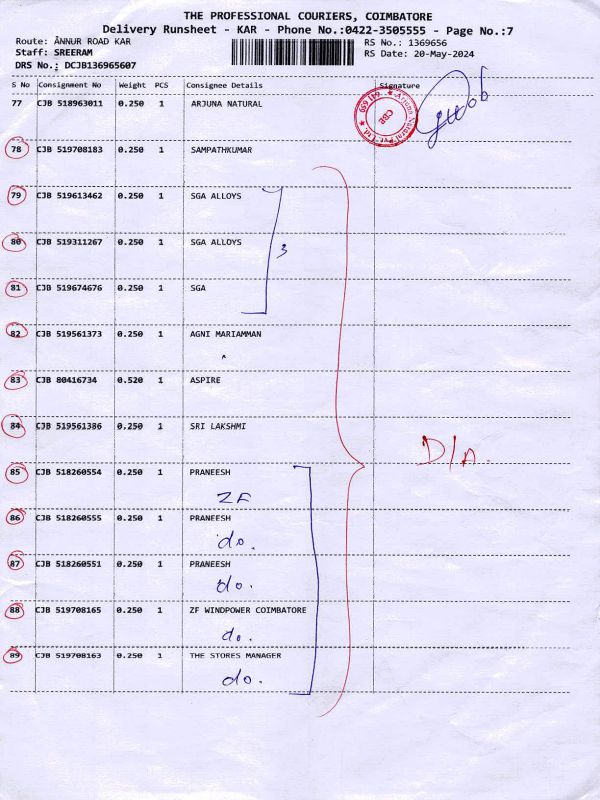 THE PROFESSIONAL COURIERS, COIMBATORE
Delivery Runsheet - KAR - Phone No.:0422-3505555 - Page No.:7
Route: ANNUR ROAD KAR
RS No.: 1369656
Staff: SREERAM
RS Date: 20-May-2024
DRS No.: DCJB136965607
S No Consignment No Weight PCS Consignee Details Signature
77 CJB 518963011 0.250 1 ARJUNA NATURAL
Arjuna Natural Pvt. Ltd
CBE
641 659
78 CJB 519708183 0.250 1 SAMPATHKUMAR
79 CJB 519613462 0.250 1 SGA ALLOYS
80 CJB 519311267 0.250 1 SGA ALLOYS
3
81 CJB 519674676 0.250 1 SGA
82 CJB 519561373 0.250 1 AGNI MARIAMMAN
83 CJB 80416734 0.520 1 ASPIRE
84 CJB 519561386 0.250 1 SRI LAKSHMI
D/A.
85 CJB 518260554 0.250 1 PRANEESH
ZF
86 CJB 518260555 0.250 1 PRANEESH
do.
87 CJB 518260551 0.250 1 PRANEESH
do.
88 CJB 519708165 0.250 1 ZF WINDPOWER COIMBATORE
do.
89 CJB 519708163 0.250 1 THE STORES MANAGER
do.